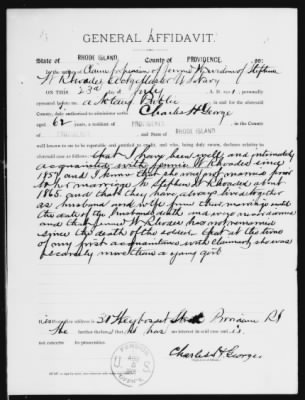 GENERAL AFFIDAVIT.
State of RHODE ISLAND, County of PROVIDENCE,
In the matter of Claim for pension of Jennie W Rhodes widow of Stephen
W Rhodes U S Navy
ON THIS 23d day of July A. D.
a Notary Public in and for the aforesaid
County, duly authorized to administer oaths Charles H George
aged 62 years, a resident of PROVIDENCE
PROVIDENCE and State of RHODE ISLAND
well known to me to be reputable and entitled to credit, and who, being duly sworn, declares in relation to
aforesaid case as follows:
that I have been well and intimately
acquainted with Jennie W Rhodes since
1857 and I know that she was not married prior
to her marriage to Stephen W Rhodes about
1865 and that they have always lived together
as husband and wife from their marriage until
the date of the husbands death and were not divorced
and that Jennie W Rhodes has not remarried
since the death of the soldier that at the time
of my first acquaintance with claimant she was
scarcely more than a young girl
address is 30 Street Providence RI
He further declares that he has no interest in said case and is
not concerned in its prosecution.
Charles H George